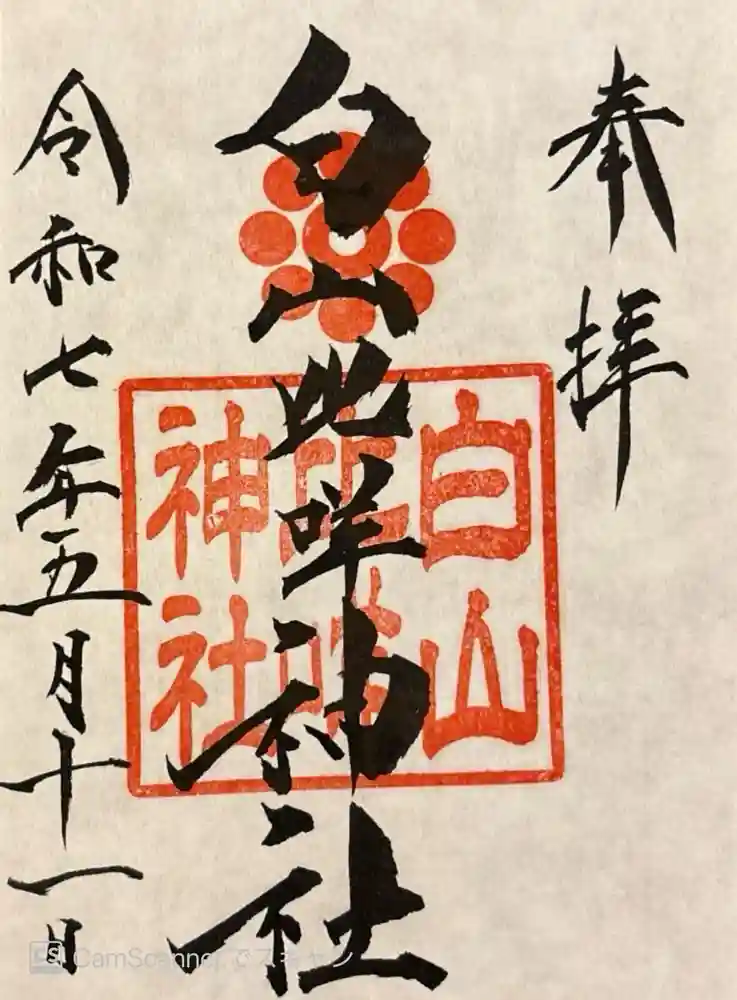 奉拝
白山比咩神社
白山
比咩
神社
令和七年五月十一日
CamScannerでスキャン